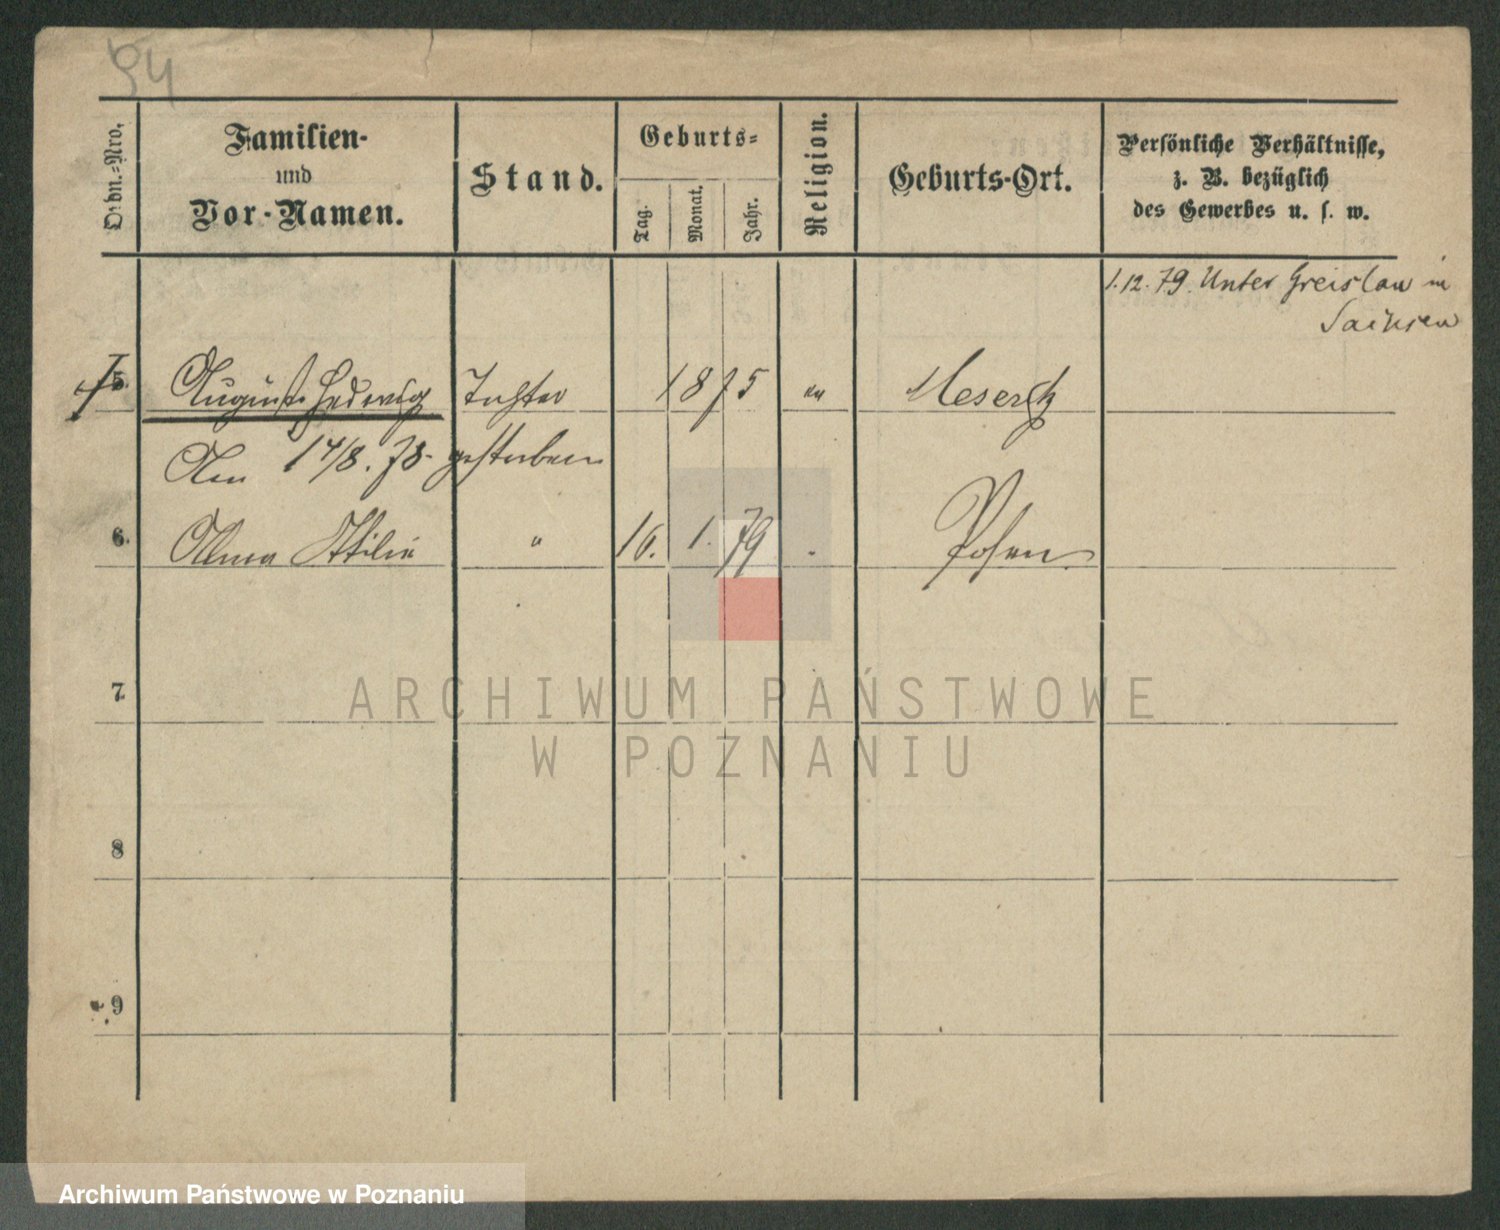 94
Ordn.-Nro.
Familien-
und
Vor-Namen.
Stand.
Geburts-
Tag.
Monat.
Jahr.
Religion.
Geburts-Ort.
Persönliche Verhältnisse,
z. B. bezüglich
des Gewerbes u. s. w.
1.12.79. Unter Greislau in
Sachsen
5. Auguste Hedwig Tochter 1875 " Meseritz
Am 14/8.78. gestorben
6. Alma Ottilie " 16. 1. 79 . Posen
7.
8
9
ARCHIWUM PAŃSTWOWE
W POZNANIU
Archiwum Państwowe w Poznaniu